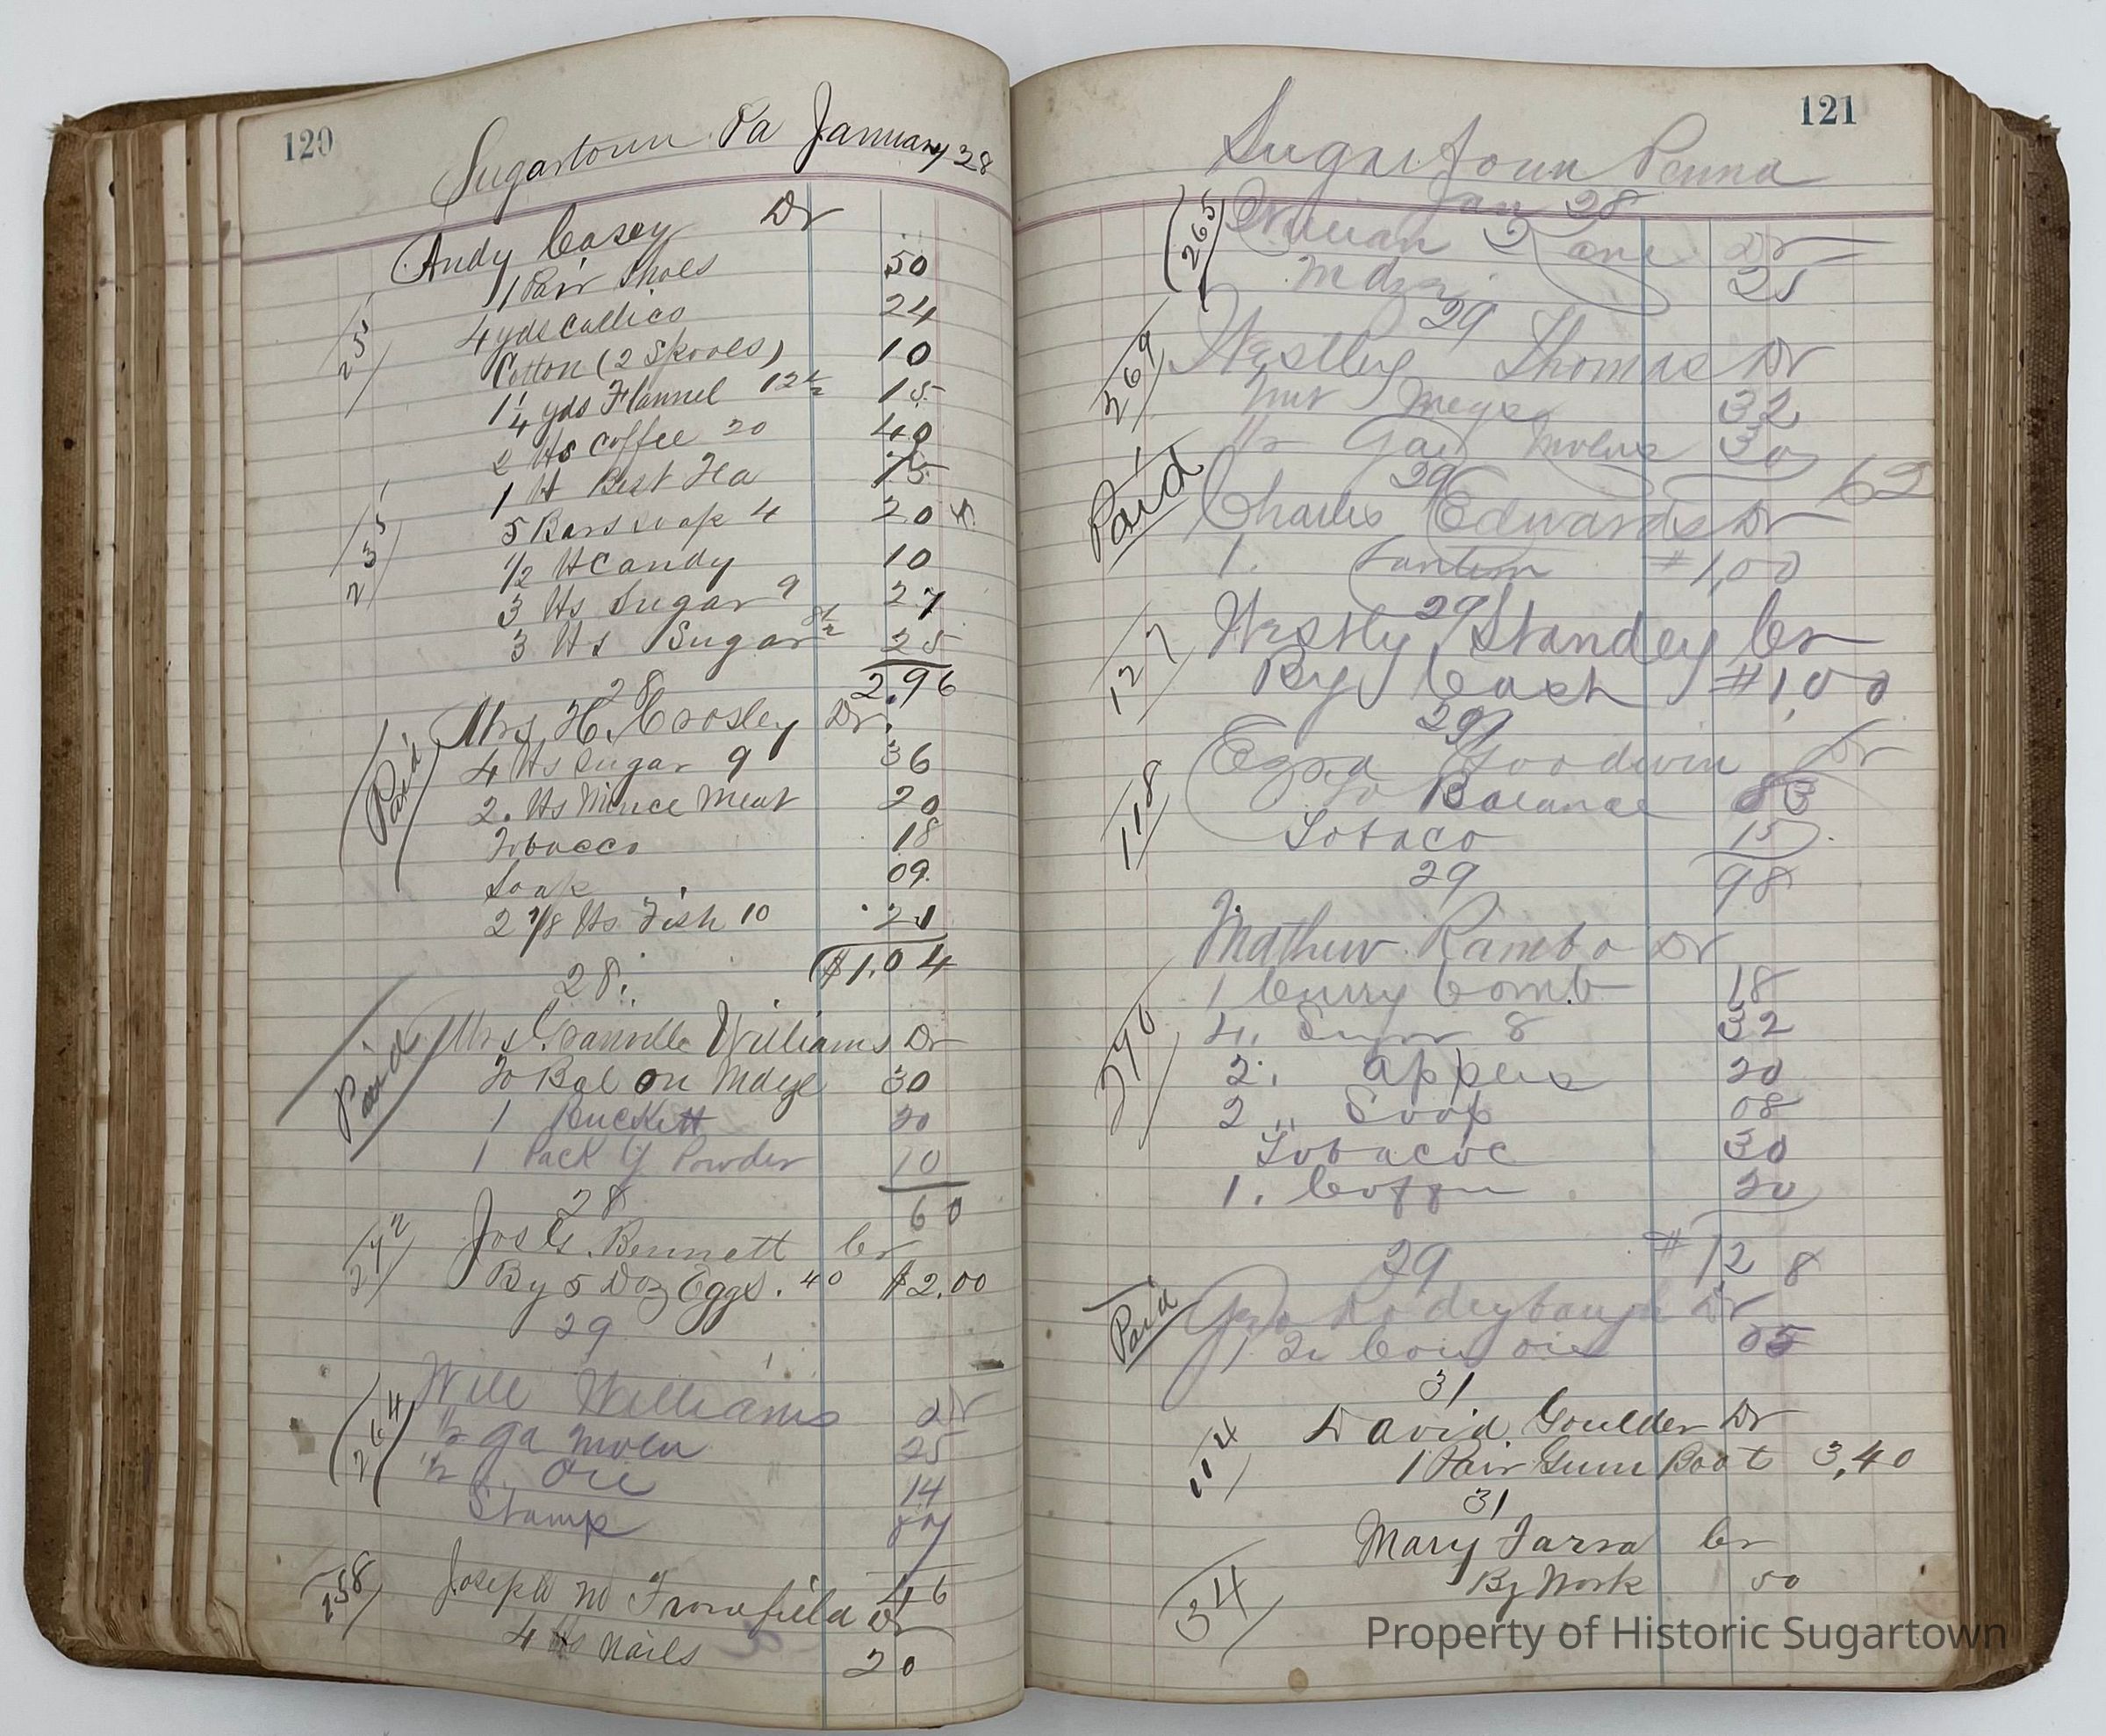 120
Sugartown Pa January 28
Andy Casey Dr
1 Pair Shoes 50
4 yds Callico 24
Cotton (2 Spools) 10
1 1/4 yds Flannel 12 1/2 15
2 lbs Coffee 20 40
1 lb Best Tea 75
5 Bars Soap 4 20
1/2 lb Candy 10
3 lbs Sugar 9 27
3 lbs Sugar 8 1/2 25
2.96
25
235
28
Mrs H. Crosley Dr.
4 lbs Sugar 9 36
2. lbs Mince Meat 20
Tobacco 18
Soap 09.
2 1/8 lbs Fish 10 21
$1.04
Paid
28.
Mrs Granville Williams Dr
To Bal on Mdge 30
1 Buckett 20
1 Pack of Powder 10
60
Paid
28
Jos G. Bennett Cr
By 5 Doz Eggs. 40 $2.00
272
29
Will Williams Dr
1/2 ga Molu 25
1/2 " Oil 14
Stamp 07
46
264
Joseph M Fronefield Dr
4 lbs Nails 20
258
121
Sugartown Penna
Jan 28
Lane Dr
Mdze 25
265
29
Westley Thomas Dr
Nut Megs 32
1/2 Gal Molus 30
62
269
29
Charles Edwards Dr
1. Lantern #1,00
Paid
29
Westly Standey Cr
By Cash #1,00
127
29
Ezra Goodwin Dr
To Balance 83
Tobaco 15
98
118
29
Mathew Rambo Dr
1 Curry Comb 18
4. 8 32
2. Apples 20
2 " Soap 08
Tobacoc 30
1. Coffee 20
#12 8
270
29
Geo Dr
1 05
Paid
31
David Goulder Dr
1 Pair Gum Boot 3,40
114
31
Mary Farra Cr
By Work 50
34
Property of Historic Sugartown